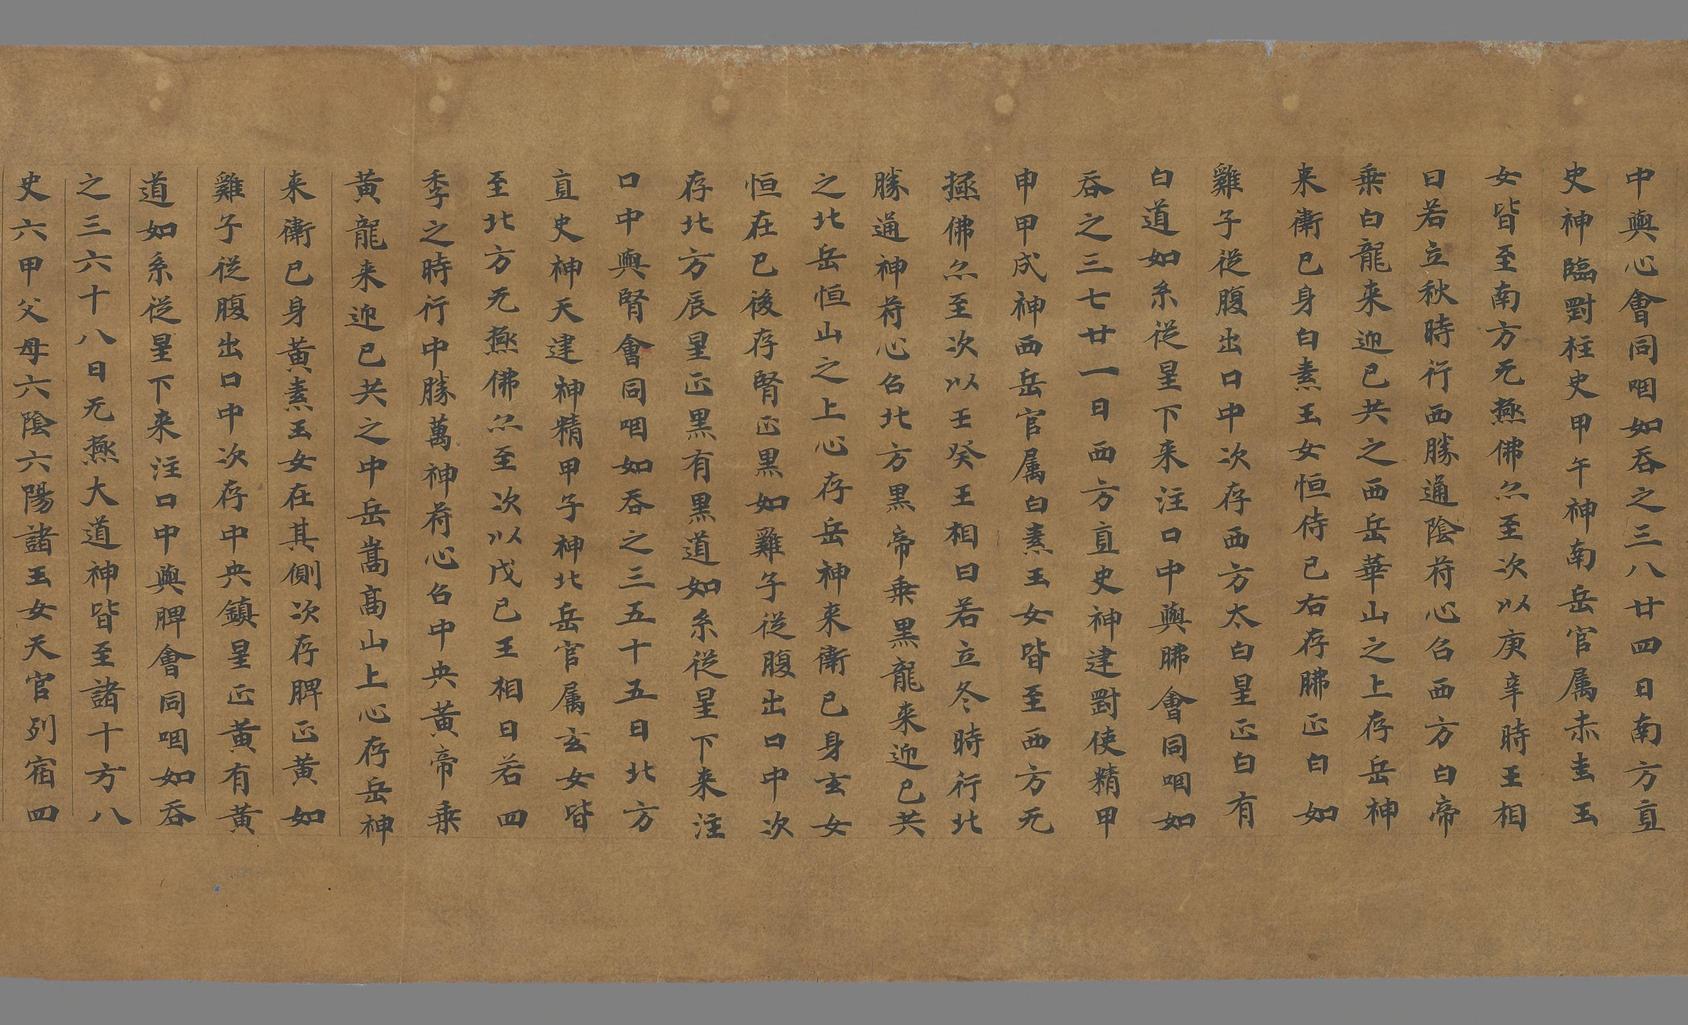 中與心會同咽如吞之三八廿四日南方直
史神臨對柱史甲午神南岳官属赤圭玉
女皆至南方无極佛尒至次以庚辛時王相
日若立秋時行西勝通陰荷心召西方白帝
乗白龍来迎已共之西岳華山之上存岳神
来衛已身白素玉女恒侍已右存肺正白如
雞子従腹出口中次存西方太白星正白有
白道如糸従星下来注口中與肺會同咽如
吞之三七廿一日西方直史神建對使精甲
申甲戌神西岳官属白素玉女皆至西方无
極佛尒至次以壬癸王相日若立冬時行北
勝通神荷心召北方黒帝乗黒龍来迎已共
之北岳恒山之上心存岳神来衛已身玄女
恒在已後存腎正黒如雞子従腹出口中次
存北方辰星正黒有黒道如糸従星下来注
口中與腎會同咽如吞之三五十五日北方
直史神天建神精甲子神北岳官属玄女皆
至北方无極佛尒至次以戊己王相日若四
季之時行中勝萬神荷心召中央黄帝乗
黄龍来迎已共之中岳嵩高山上心存岳神
来衛已身黄素玉女在其側次存脾正黄如
雞子従腹出口中次存中央鎮星正黄有黄
道如糸従星下来注口中與脾會同咽如吞
之三六十八日无極大道神皆至諸十方八
史六甲父母六陰六陽諸玉女天官列宿四